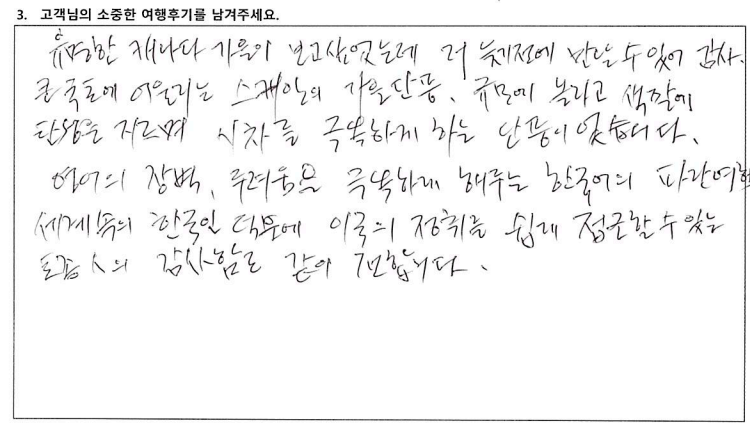 3. 고객님의 소중한 여행후기를 남겨주세요.
유명한 캐나다 가을이 보고싶었는데 더 늦기전에 만날 수 있어 감사.
큰 국토에 어울리는 스케일의 가을단풍, 규모에 놀라고 색깔에
탄성을 지르며 시차를 극복하게 하는 단풍이었습니다.
영어의 장벽, 두려움을 극복하게 해주는 한국어의 파란여행
세계속의 한국인 덕분에 이국의 정취를 쉽게 접근할 수 있는
의 감사함도 같이 전합니다.